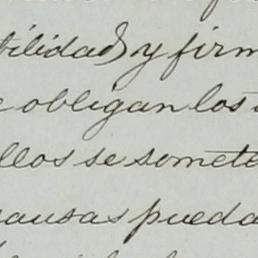 bilidad y firm
obligan los
ellos se somete
causas pueda